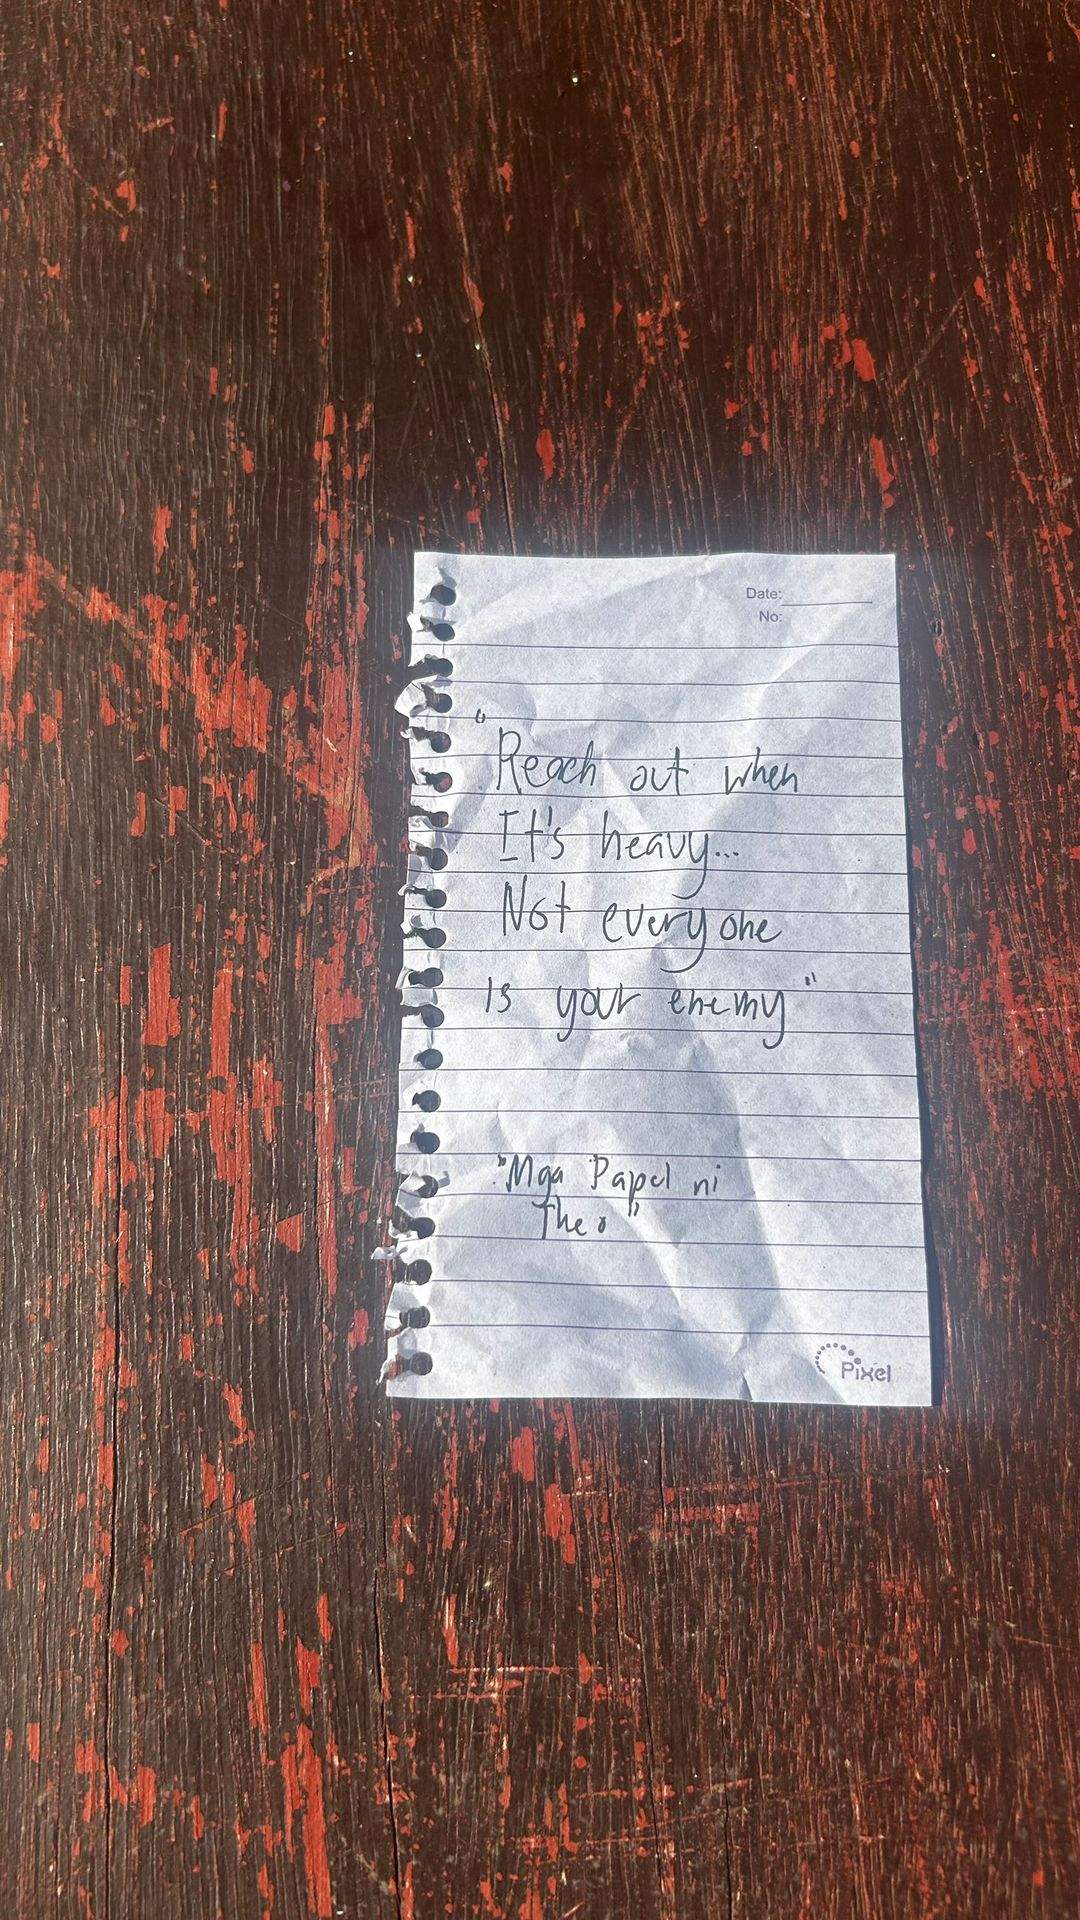 Date:
No:
"Reach out when
It's heavy...
Not everyone
Is your enemy"
"Mga Papel ni
Theo"
Pixel